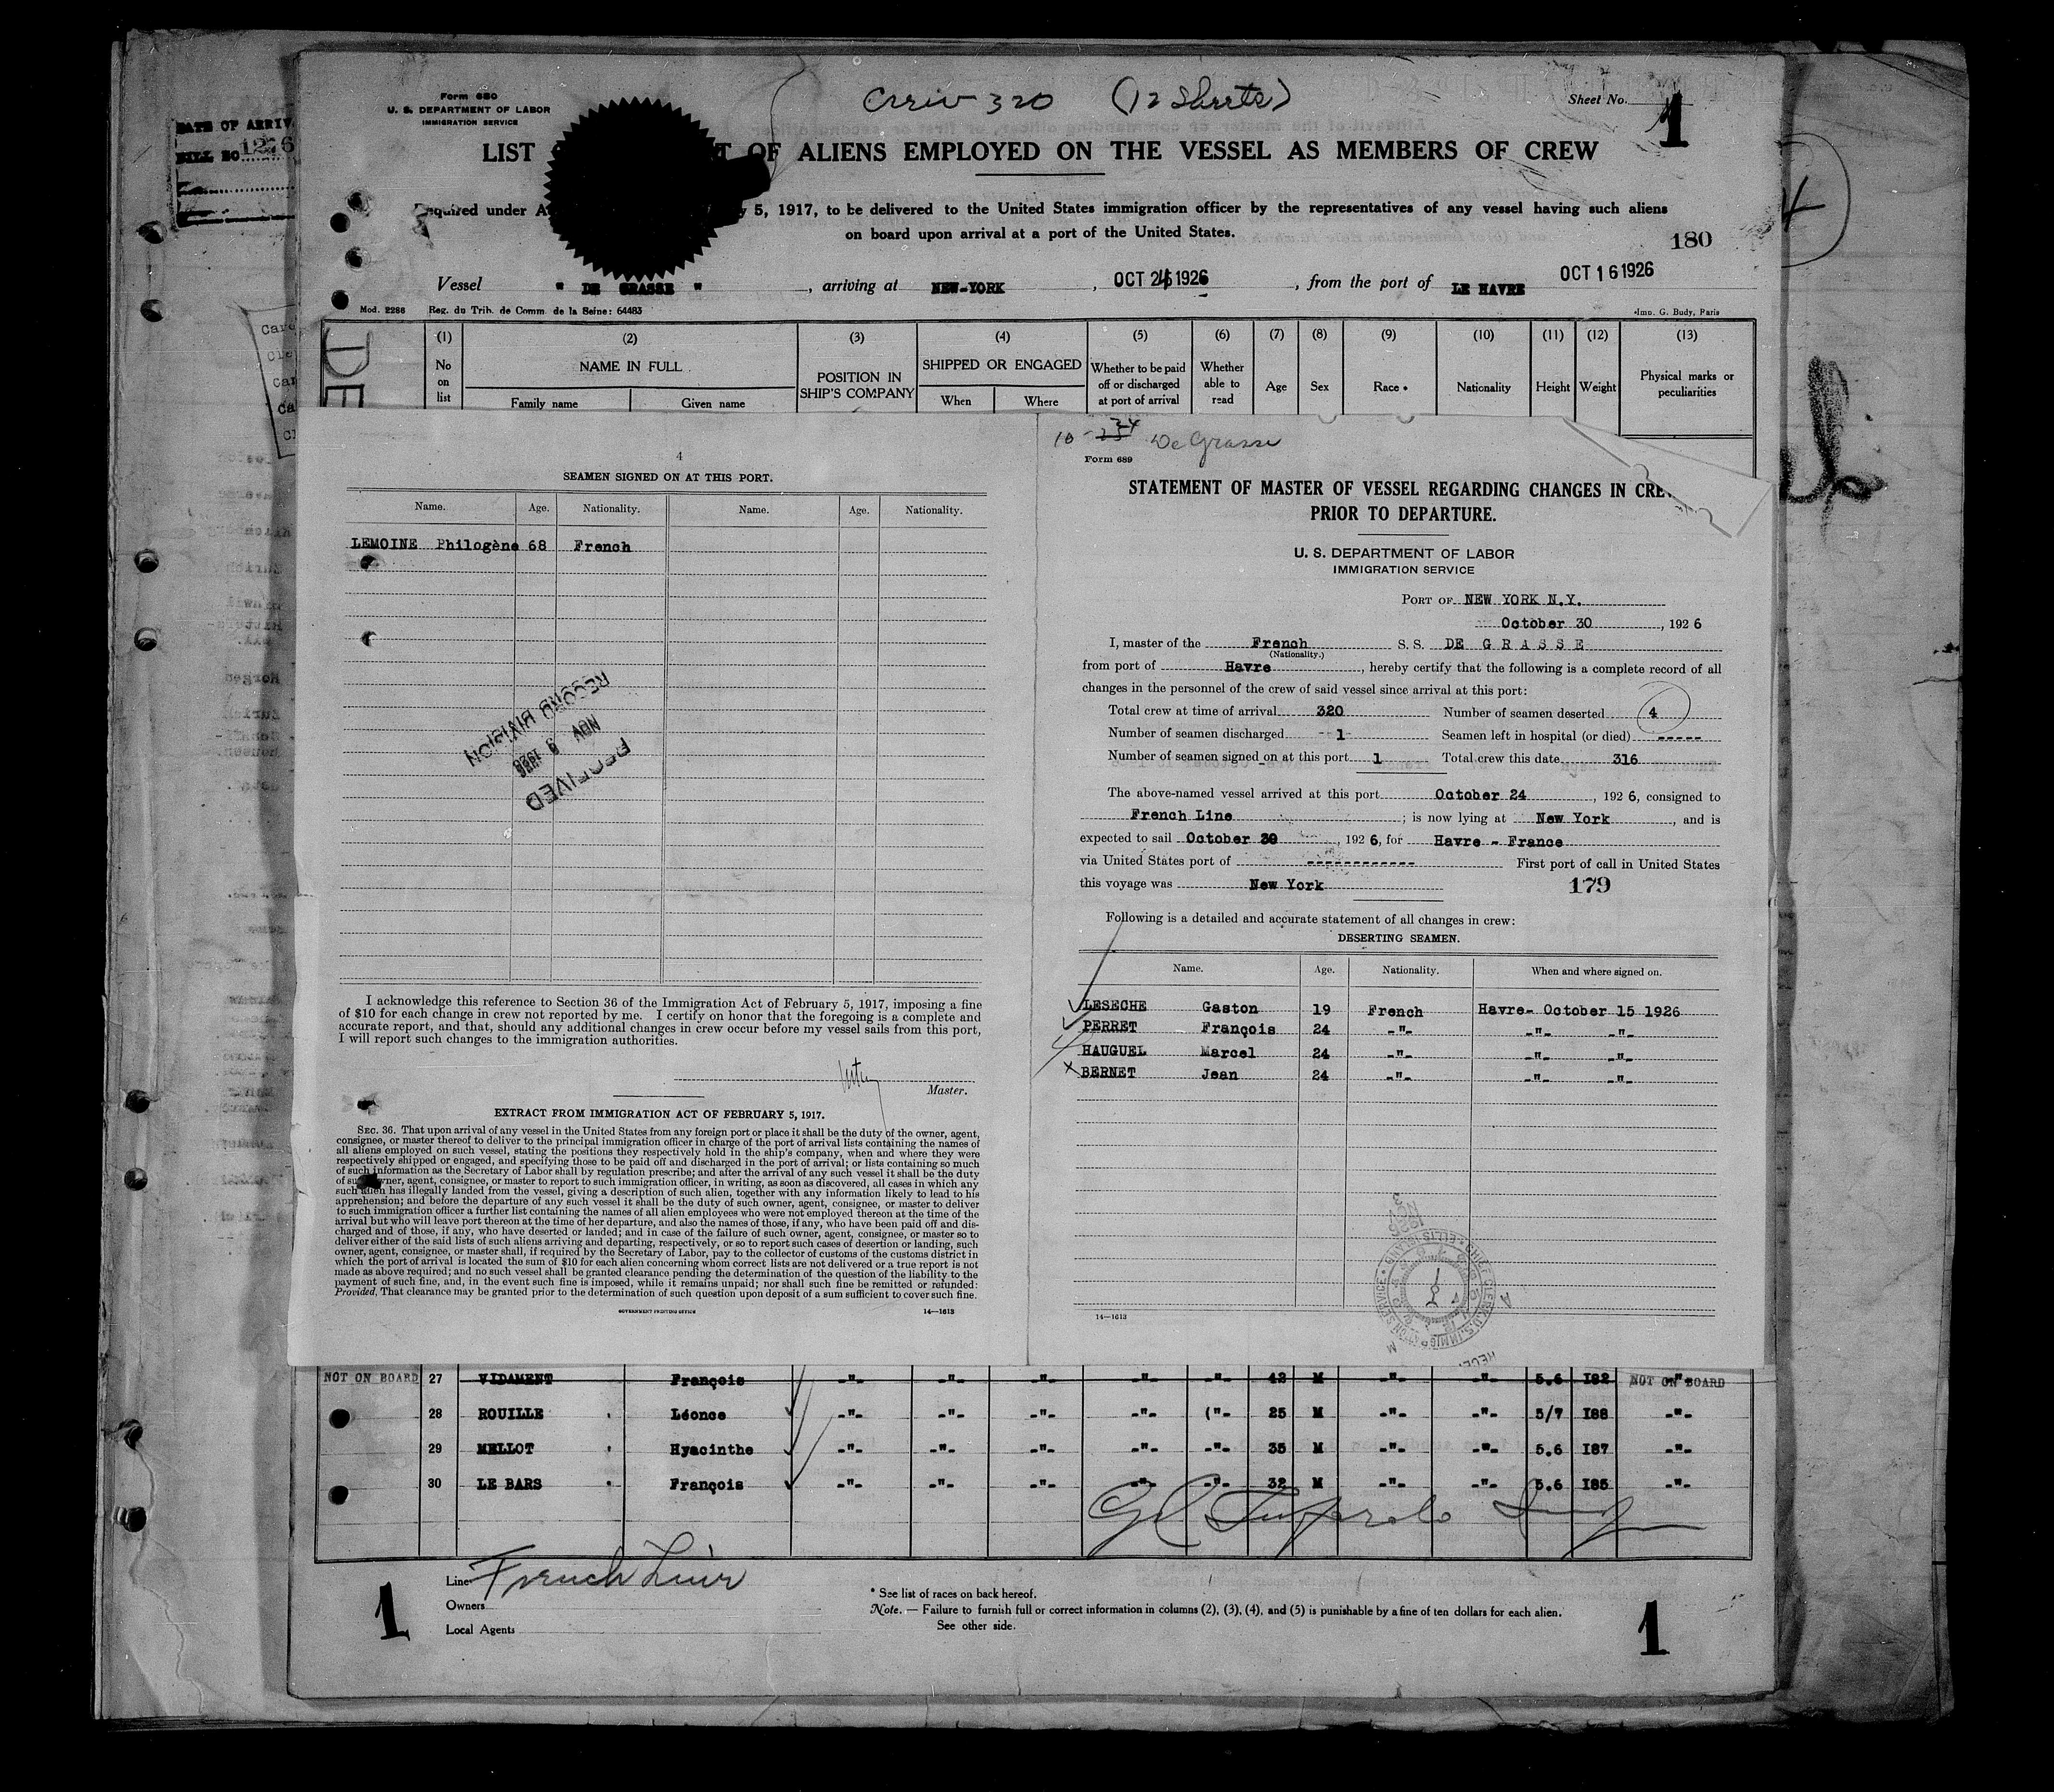 DATE OF ARRIV
BILL NO. 1276
Form 680
U. S. DEPARTMENT OF LABOR
IMMIGRATION SERVICE
Crew 320 (12 Sheets)
Sheet No. 1
LIST OF ALIENS EMPLOYED ON THE VESSEL AS MEMBERS OF CREW
quired under A y 5, 1917, to be delivered to the United States immigration officer by the representatives of any vessel having such aliens
on board upon arrival at a port of the United States.
180
4
Vessel " DE GRASSE " , arriving at NEW-YORK , OCT 24 1926 , from the port of LE HAVRE OCT 16 1926
Mod. 2286 Reg. du Trib. de Comm. de la Seine: 64483 Imp. G. Budy, Paris
DE
(1) (2) (3) (4) (5) (6) (7) (8) (9) (10) (11) (12) (13)
No on list NAME IN FULL POSITION IN SHIP'S COMPANY SHIPPED OR ENGAGED Whether to be paid off or discharged at port of arrival Whether able to read Age Sex Race * Nationality Height Weight Physical marks or peculiarities
Family name Given name When Where
4
SEAMEN SIGNED ON AT THIS PORT.
Name. Age. Nationality. Name. Age. Nationality.
LEMOINE Philogène 68 French
RECORD DIVISION
NOV 3 1926
RECEIVED
I acknowledge this reference to Section 36 of the Immigration Act of February 5, 1917, imposing a fine
of $10 for each change in crew not reported by me. I certify on honor that the foregoing is a complete and
accurate report, and that, should any additional changes in crew occur before my vessel sails from this port,
I will report such changes to the immigration authorities.
Master.
EXTRACT FROM IMMIGRATION ACT OF FEBRUARY 5, 1917.
SEC. 36. That upon arrival of any vessel in the United States from any foreign port or place it shall be the duty of the owner, agent,
consignee, or master thereof to deliver to the principal immigration officer in charge of the port of arrival lists containing the names of
all aliens employed on such vessel, stating the positions they respectively hold in the ship's company, when and where they were
respectively shipped or engaged, and specifying those to be paid off and discharged in the port of arrival; or lists containing so much
of such information as the Secretary of Labor shall by regulation prescribe; and after the arrival of any such vessel it shall be the duty
of such owner, agent, consignee, or master to report to such immigration officer, in writing, as soon as discovered, all cases in which any
such alien has illegally landed from the vessel, giving a description of such alien, together with any information likely to lead to his
apprehension; and before the departure of any such vessel it shall be the duty of such owner, agent, consignee, or master to deliver
to such immigration officer a further list containing the names of all alien employees who were not employed thereon at the time of the
arrival but who will leave port thereon at the time of her departure, and also the names of those, if any, who have been paid off and dis-
charged and of those, if any, who have deserted or landed; and in case of the failure of such owner, agent, consignee, or master so to
deliver either of the said lists of such aliens arriving and departing, respectively, or so to report such cases of desertion or landing, such
owner, agent, consignee, or master shall, if required by the Secretary of Labor, pay to the collector of customs of the customs district in
which the port of arrival is located the sum of $10 for each alien concerning whom correct lists are not delivered or a true report is not
made as above required; and no such vessel shall be granted clearance pending the determination of the question of the liability to the
payment of such fine, and, in the event such fine is imposed, while it remains unpaid; nor shall such fine be remitted or refunded:
Provided, That clearance may be granted prior to the determination of such question upon deposit of a sum sufficient to cover such fine.
GOVERNMENT PRINTING OFFICE 14—1613
10- 24 De Grasse
Form 689
STATEMENT OF MASTER OF VESSEL REGARDING CHANGES IN CREW
PRIOR TO DEPARTURE.
U. S. DEPARTMENT OF LABOR
IMMIGRATION SERVICE
PORT OF NEW YORK N.Y.
October 30 , 192 6
I, master of the French S. S. DE G R A S S E
(Nationality.)
from port of Havre , hereby certify that the following is a complete record of all
changes in the personnel of the crew of said vessel since arrival at this port:
Total crew at time of arrival 320 Number of seamen deserted 4
Number of seamen discharged 1 Seamen left in hospital (or died) -----
Number of seamen signed on at this port 1 Total crew this date 316
The above-named vessel arrived at this port October 24 , 192 6, consigned to
French Line ; is now lying at New York , and is
expected to sail October 30 , 192 6, for Havre - France
via United States port of ------------ First port of call in United States
this voyage was New York 179
Following is a detailed and accurate statement of all changes in crew:
DESERTING SEAMEN.
Name. Age. Nationality. When and where signed on.
LESECHE Gaston 19 French Havre- October 15 1926
PERRET François 24 -"- -"- -"-
HAUGUEL Marcel 24 -"- -"- -"-
BERNET Jean 24 -"- -"- -"-
14—1613
NOT ON BOARD 27 VIDAMENT François -"- -"- -"- -"- -"- 42 M -"- -"- 5.6 I82 NOT ON BOARD
28 ROUILLE Léonce -"- -"- -"- -"- ("- 25 M -"- -"- 5/7 I88 -"-
29 MELLOT Hyacinthe -"- -"- -"- -"- -"- 35 M -"- -"- 5.6 I87 -"-
30 LE BARS François -"- -"- -"- -"- -"- 32 M -"- -"- 5.6 I85 -"-
Line French Line
Owners
Local Agents
* See list of races on back hereof.
Note. — Failure to furnish full or correct information in columns (2), (3), (4), and (5) is punishable by a fine of ten dollars for each alien.
See other side.
1
1